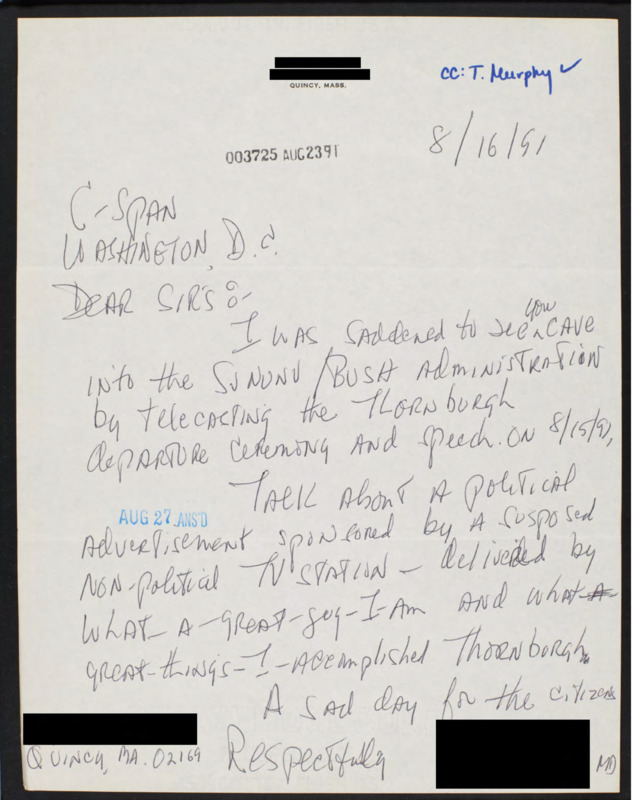 QUINCY, MASS.
cc: T. Murphy ✓
003725 AUG2391
8/16/91
C-SPAN
WASHINGTON, D.C.
DEAR SIR'S:-
I WAS SADDENED to SEE you CAVE
INTO the SUNUNU/BUSH ADMINISTRATION
by TELECASTING the THORNBURGH
dEPARTURE CEREMONY AND SPEECH. ON 8/15/91,
TALK ABOUT A POLITICAL
AUG 27 ANS'D
AdVERTISEMENT SPONSORED by A SUSPOSED
NON-POLITICAL TV STATION - dElIVEREd by
WHAT-A-GREAT-guy-I-AM AND WHAT-A-
GREAT-thINGS-I-ACComplished THORNBURGH.
A SAD dAY for the CITIZENS
QUINCY, MA. 02169
RESPECTfully
MD